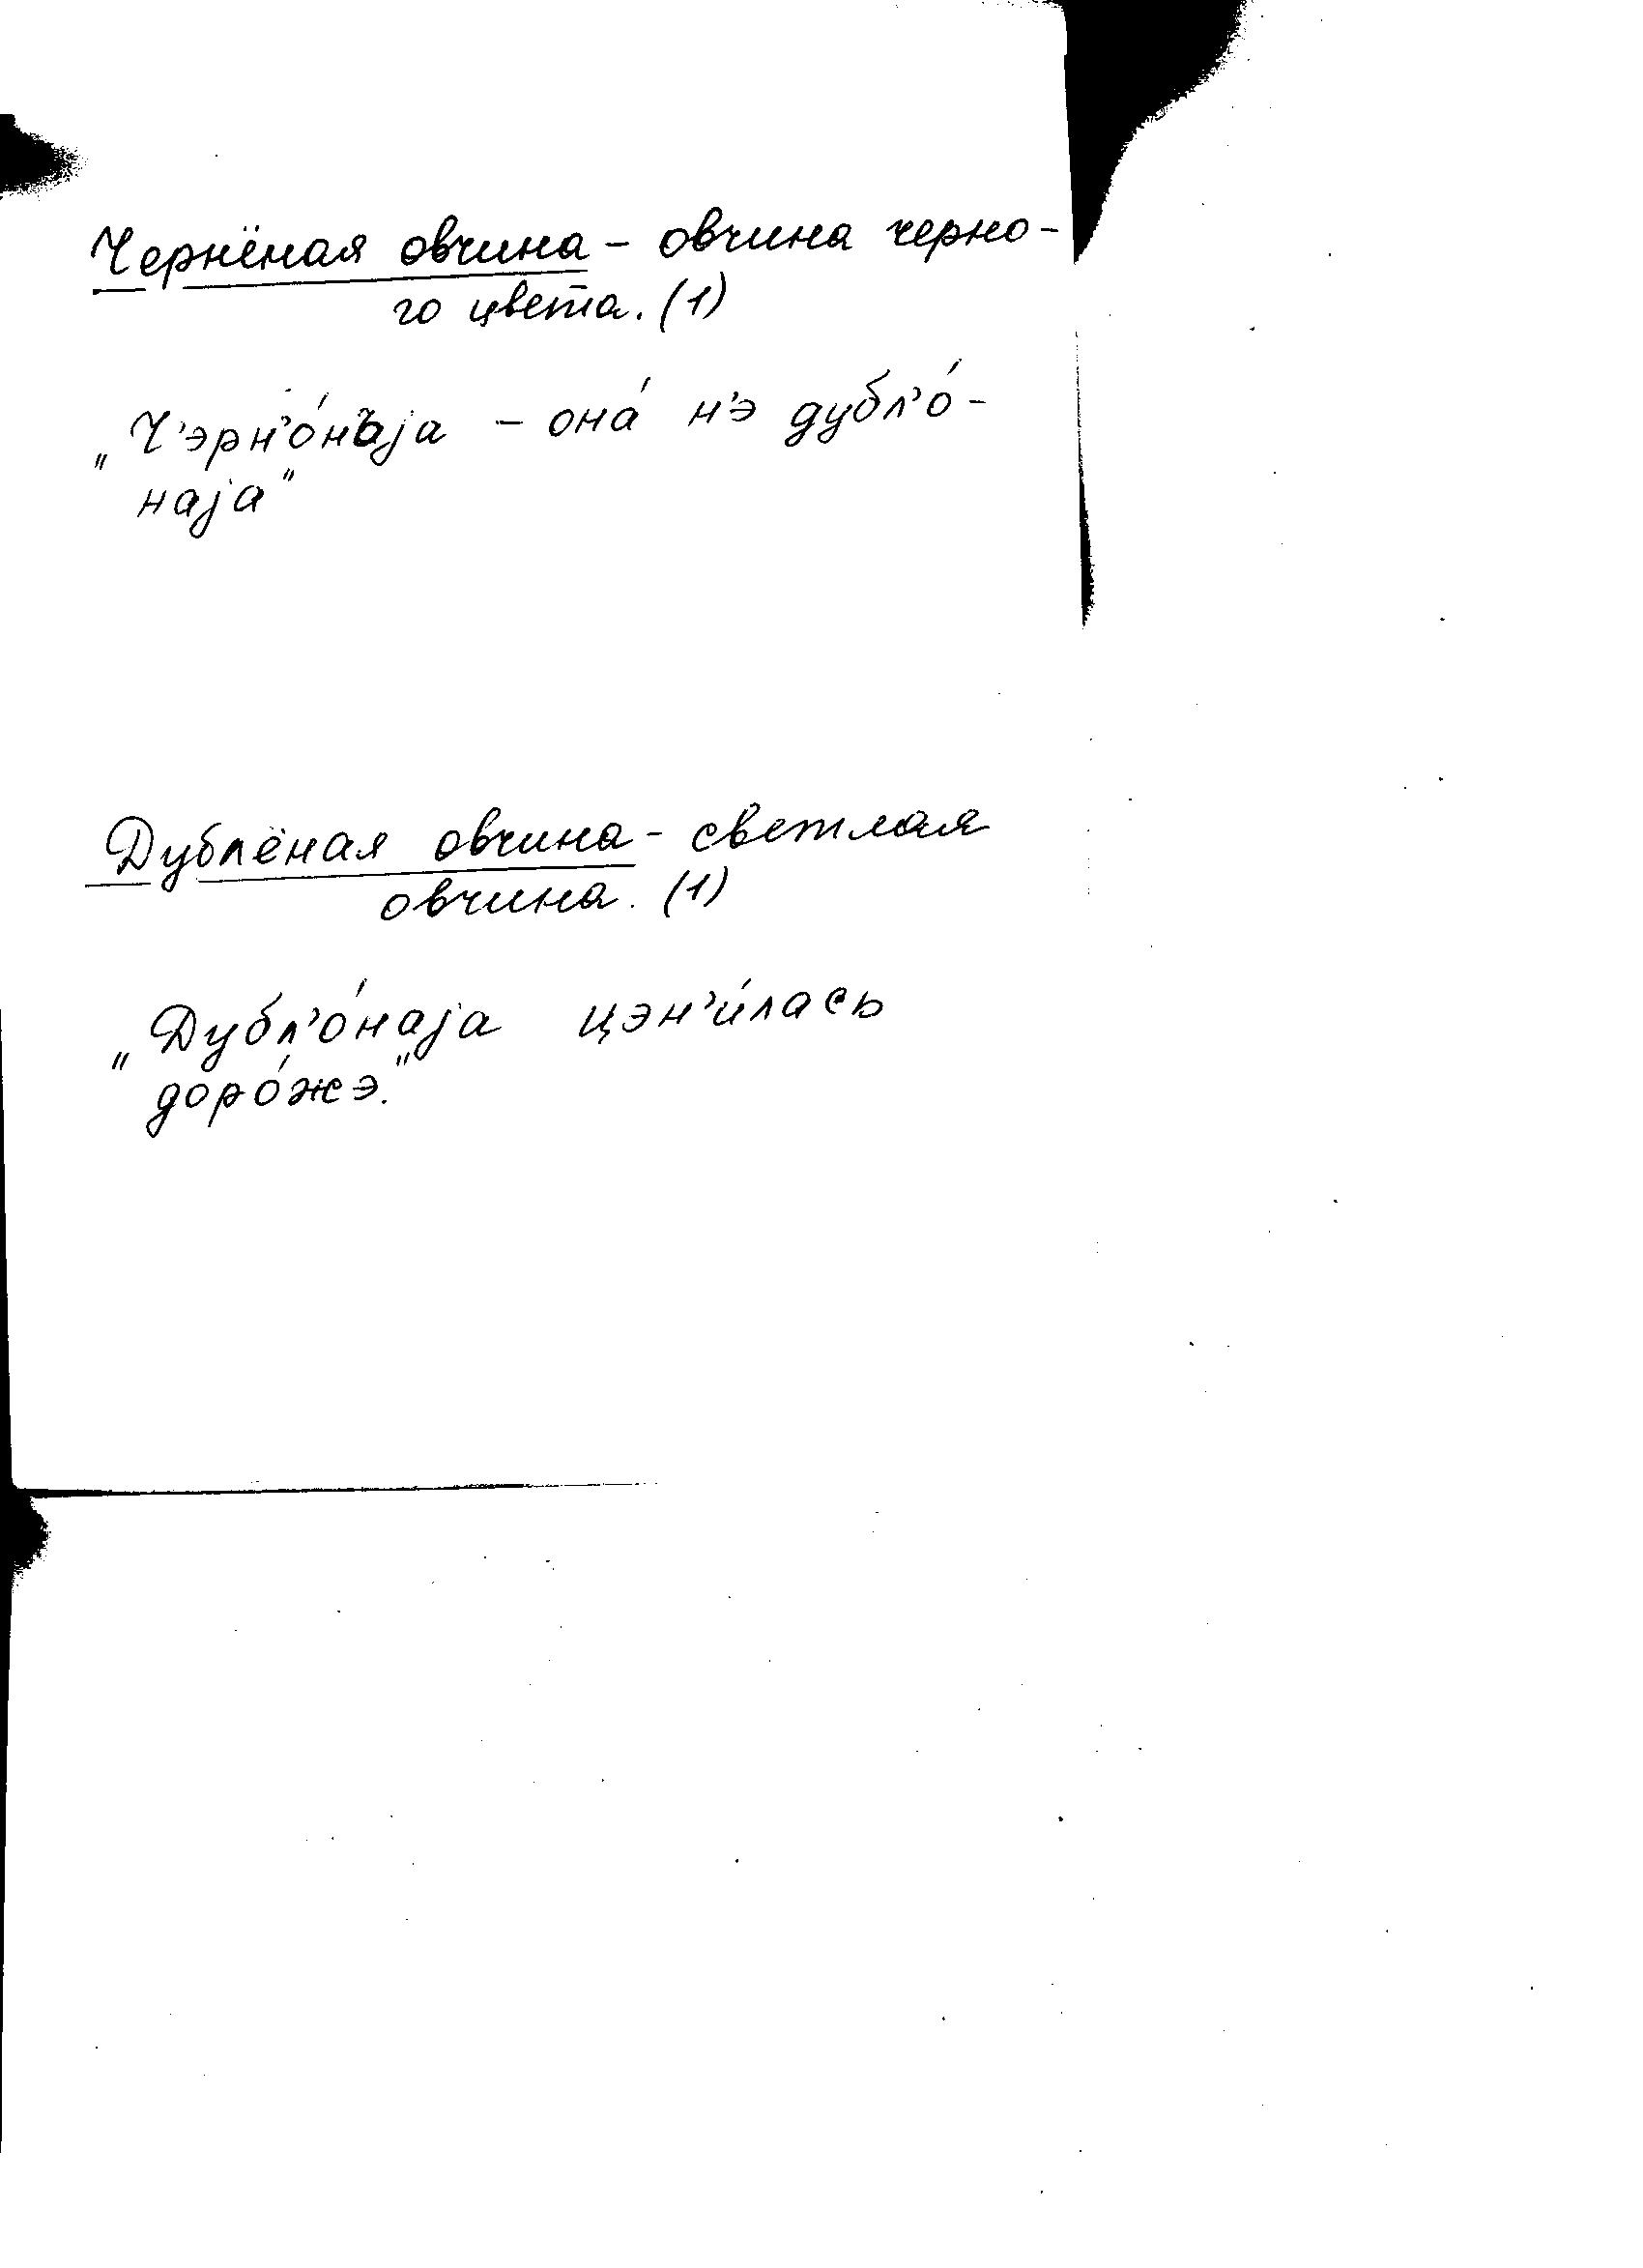 Чернёная овчина – овчина черно-
го цвета. (1)
„Ч'эрн'о́наjа – она́ н'э дубл'о́-
наjа"
Дублёная овчина – светлая
овчина. (1)
„Дубл'о́наjа цэн'и́лась
доро́жэ."